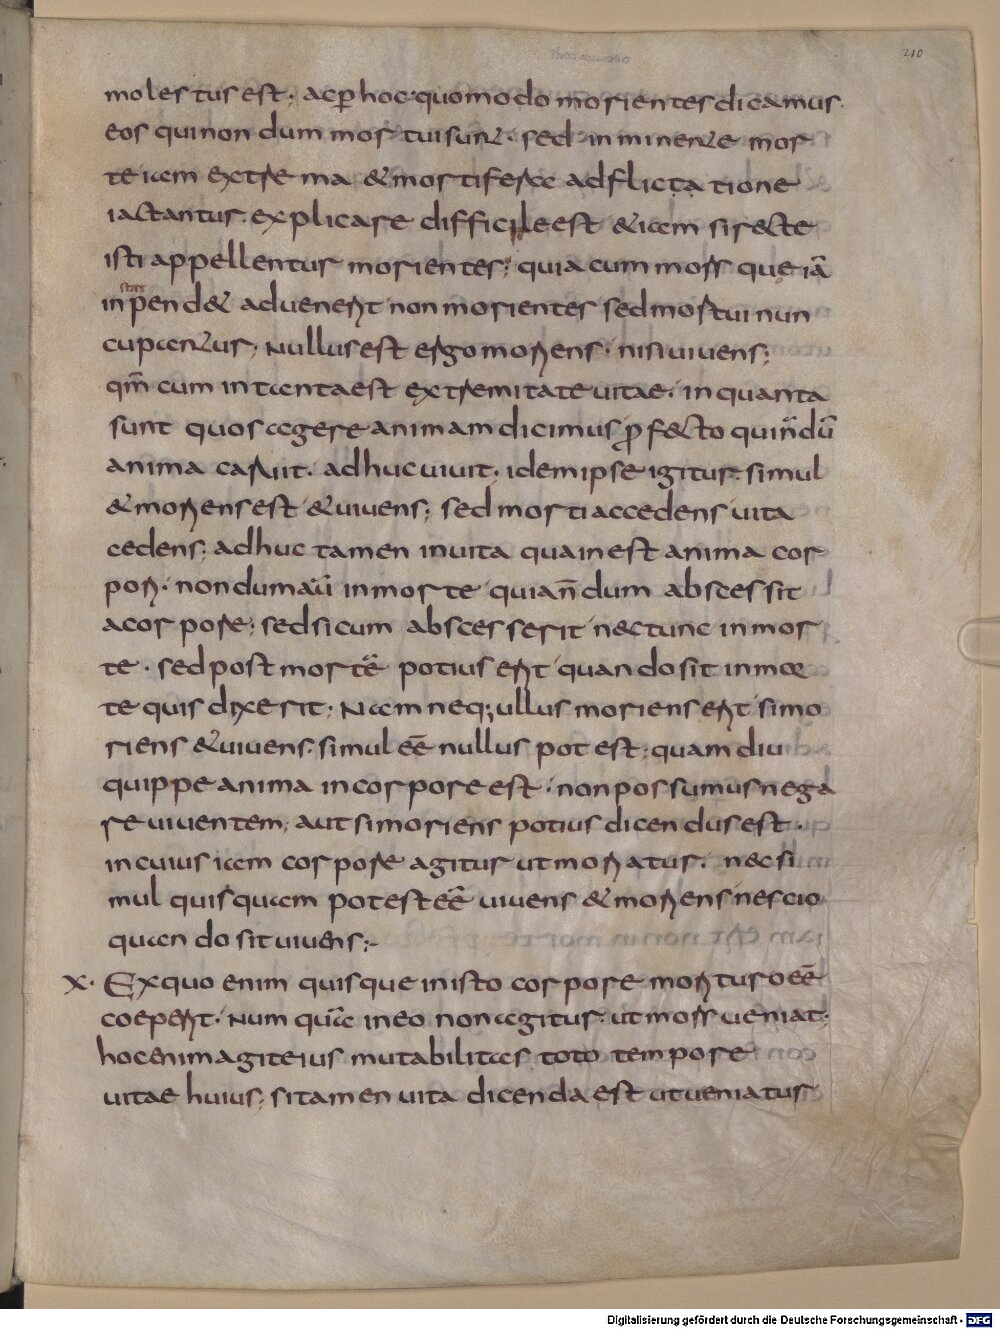 210
molestus est; ac p̱ hoc quomodo morientes dicamus
eos qui nondum mortui sunt. sed inminente mor
te iam extrema & mortifera adflictatione
iactantur. explicare difficile est &iam si recte
isti appellentur morientes; quia cum mors que iā
inpend& aduenerit non morientes sed mortui nun
cupantur; Nullus est ergo moriens. nisi uiuens;
qm̄ cum in tanta est extremitate uitae. in quanta
sunt quos agere animam dicimus ꝓfecto qui nōdū
anima caruit. adhuc uiuit. idem ipse igitur simul
& moriens est & uiuens; sed morti accedens uita
cedens; adhuc tamen in uita quia inest anima cor
pori. nondum aū in morte quia n̄dum abscessit
a corpore; sed si cum abscesserit nec tunc in mor
te. sed post mortē potius erit quando sit in mor
te quis dixerit; Nam neq; ullus moriens erit si mo
riens & uiuens simul eē nullus potest; quamdiu
quippe anima in corpore est. non possumus nega
re uiuentem; aut si moriens potius dicendus est.
in cuius iam corpore agitur ut moriatur. nec si
mul quisquam potest eē uiuens & moriens nescio
quando sit uiuens;
X. Ex quo enim quisque in isto corpore morituro eē
coeperit. Num quā in eo non agitur ut mors ueniat.
hoc enim agit eius mutabilitas toto tempore
uitae huius; si tamen uita dicenda est ut ueniatur
Digitalisierung gefördert durch die Deutsche Forschungsgemeinschaft - DFG